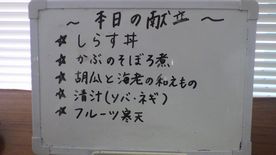 ～本日の献立～
☆ しらす丼
☆ かぶのそぼろ煮
☆ 胡瓜と海老の和えもの
☆ 清汁(ソバ・ネギ)
☆ フルーツ寒天